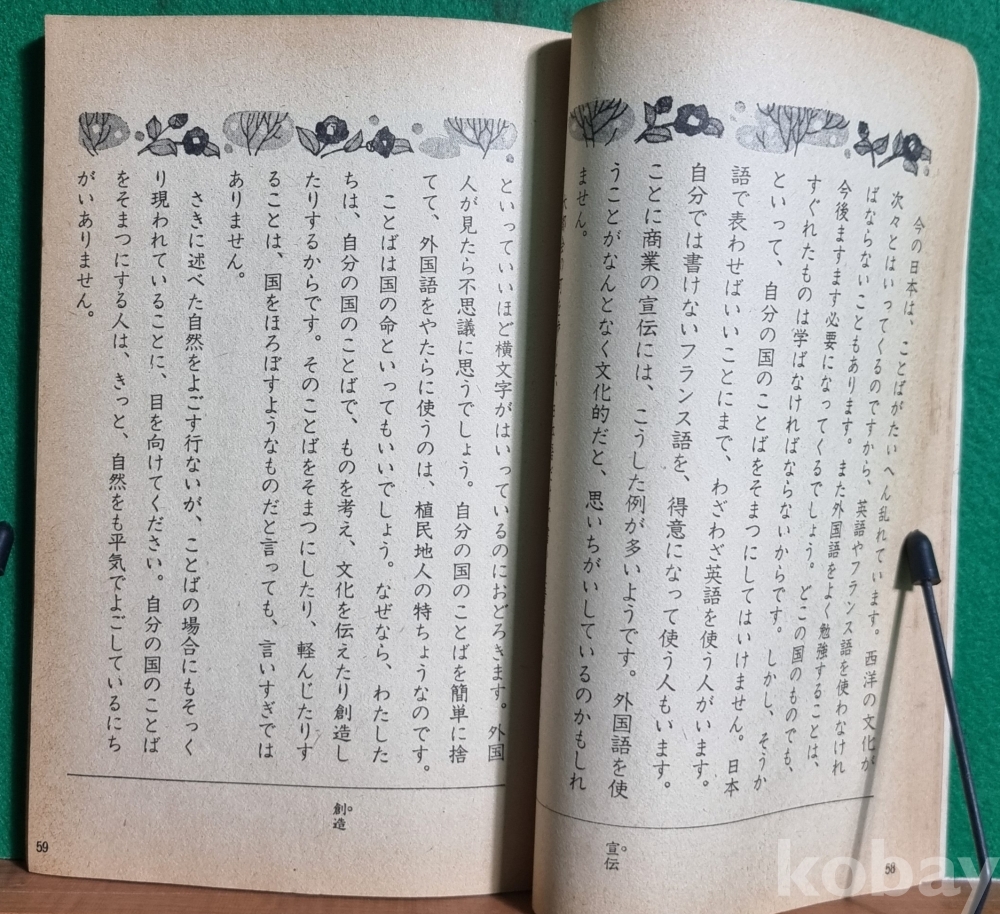 今の日本は、ことばがたいへん乱れています。西洋の文化が
次々とはいってくるのですから、英語やフランス語を使わなけれ
ばならないこともあります。また外国語をよく勉強することは、
今後ますます必要になってくるでしょう。どこの国のものでも、
すぐれたものは学ばなければならないからです。しかし、そうか
といって、自分の国のことばをそまつにしてはいけません。日本
語で表わせばいいことにまで、わざわざ英語を使う人がいます。
自分では書けないフランス語を、得意になって使う人もいます。
ことに商業の宣伝には、こうした例が多いようです。外国語を使
うことがなんとなく文化的だと、思いちがいしているのかもしれ
ません。
宣伝
58
といっていいほど横文字がはいっているのにおどろきます。外国
人が見たら不思議に思うでしょう。自分の国のことばを簡単に捨
てて、外国語をやたらに使うのは、植民地人の特ちょうなのです。
ことばは国の命といってもいいでしょう。なぜなら、わたした
ちは、自分の国のことばで、ものを考え、文化を伝えたり創造し
たりするからです。そのことばをそまつにしたり、軽んじたりす
ることは、国をほろぼすようなものだと言っても、言いすぎでは
ありません。
さきに述べた自然をよごす行ないが、ことばの場合にもそっく
り現われていることに、目を向けてください。自分の国のことば
をそまつにする人は、きっと、自然をも平気でよごしているにち
がいありません。
創造
59
kobay